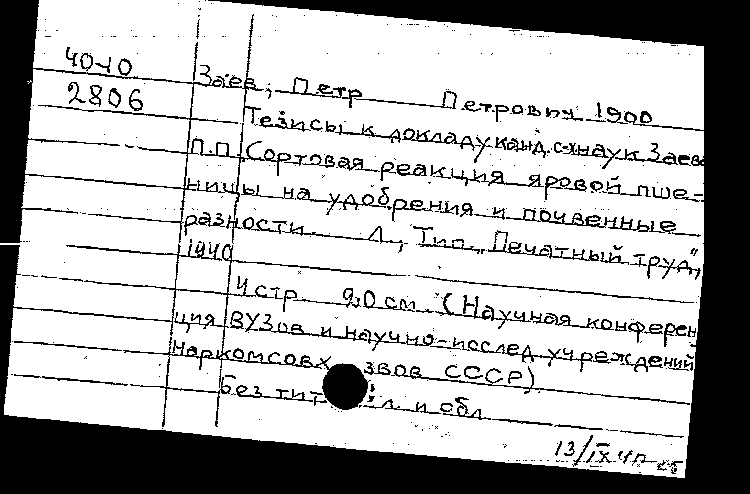 40-10
2806
Заев, Петр Петрович 1900
Тезисы к докладу канд. с-х наук Заева
П.П. Сортовая реакция яровой пше-
ницы на удобрения и почвенные
разности. Л., Тип. „Печатный труд",
1940
4 стр. 20 см. (Научная конферен
ция ВУЗов и научно-исслед учреждений
Наркомсовхозов СССР)
Без тит. л. и обл.
13/IX 40